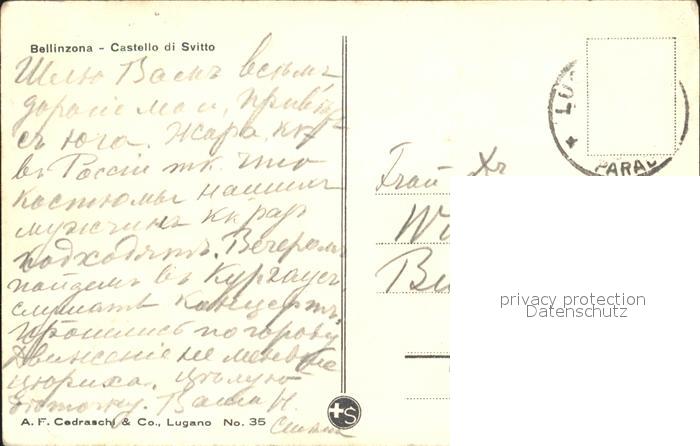 Bellinzona - Castello di Svitto
Шлю Вамъ всѣмъ
дорогіе мои, привѣтъ
съ юга. Жара, какъ
въ Россіи тк. что
костюмы нашимъ
мужчинъ какъ раз
подходятъ. Вечеромъ
пойдемъ въ Курзаусъ,
слушать концертъ.
Прошлись по городу
Движеніе не меньше
цюриха. Цѣлую
Ваша Н.
A. F. Cedraschi & Co., Lugano No. 35
+S
LU
PARAD
Frau Dr
Wi
Be
privacy protection
Datenschutz